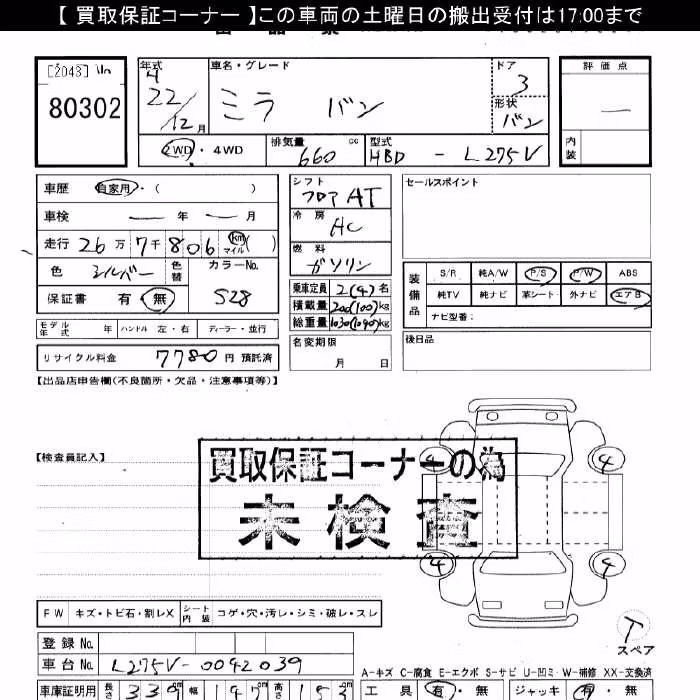 【 買取保証コーナー 】この車両の土曜日の搬出受付は17:00まで
[2043]
80302
年式 車名・グレード ドア 評価点
22/12月 ミラ バン 3
形状 バン
2WD ・ 4WD 排気量 660 cc 型式 HBD - L275V 内装
車歴 自家用・( )
シフト フロア AT
セールスポイント
車検 ー 年 ー 月
冷房 AC
走行 26万7千806 km マイル( )
燃料 ガソリン
色 シルバー 色替 カラーNo. S28
保証書 有・無
乗車定員 2(4)名
積載量 200(100)kg
総重量 1030(1090)kg
装備品 S/R 純A/W P/S P/W ABS
純TV 純ナビ 革シート 外ナビ エアB
ナビ型番:
モデル年式 年 ハンドル 左・右 ディーラー・並行
名変期限 月 日
後日品
リサイクル料金 7780 円 預託済
【出品店申告欄(不良箇所・欠品・注意事項等)】
【検査員記入】
買取保証コーナーの為
未検査
4 4
4 4
FW キズ・トビ石・割レX シート内装 コゲ・穴・汚レ・シミ・破レ・スレ
T
スペア
登録 No.
車台 No. L275V-0042039
A-キズ C-腐食 E-エクボ S-サビ U-凹ミ W-補修 XX-交換済
車庫証明用 長さ 339cm 幅 147cm 高さ 153cm
工具 有・無 ジャッキ 有・無